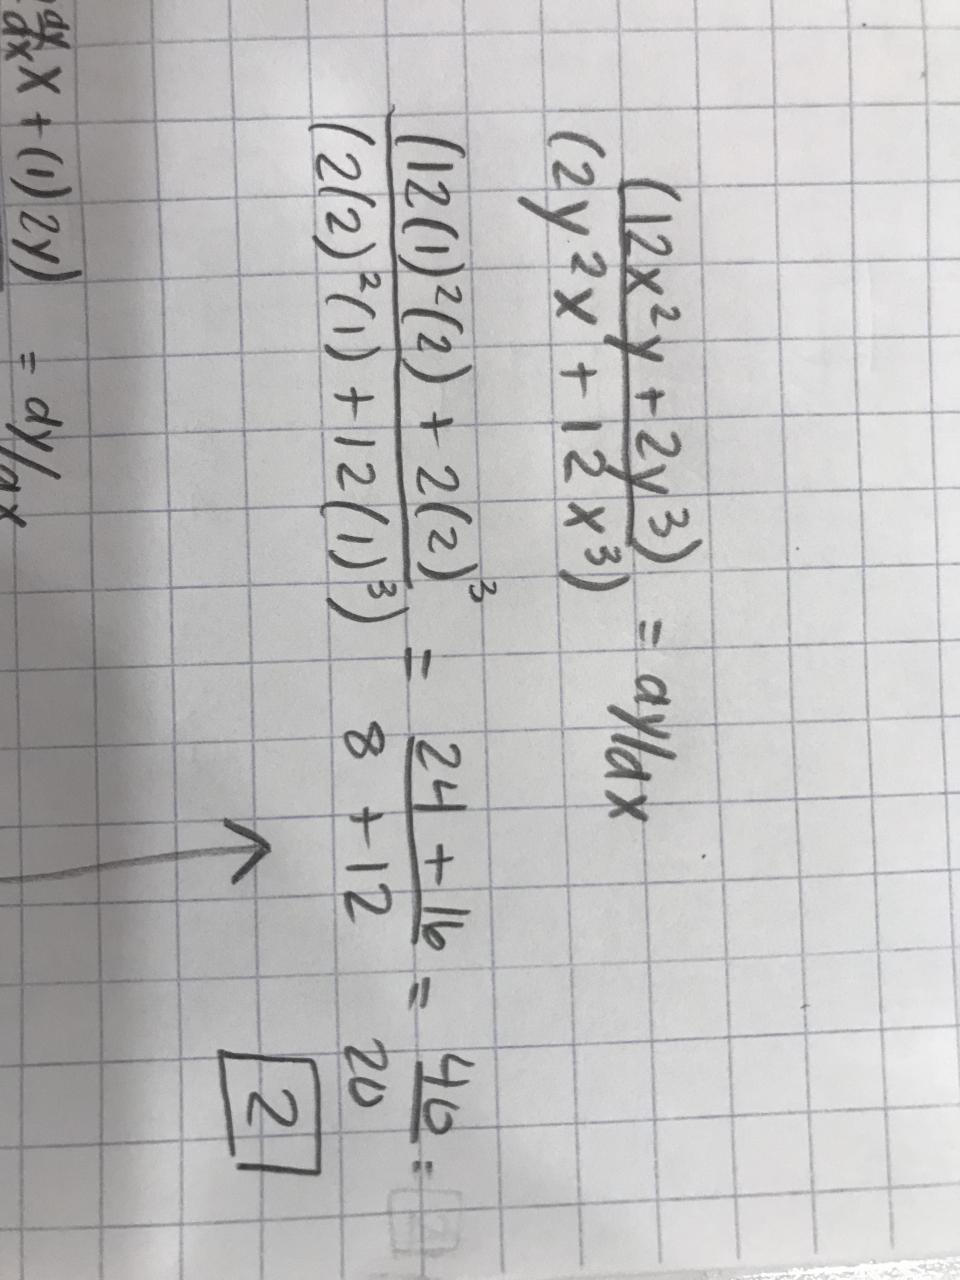 (12x²y + 2y³)
(2y²x + 12x³) = dy/dx
(12(1)²(2) + 2(2)³ = 24 + 16 = 40 =
(2(2)²(1) + 12(1)³) 8 + 12 20
2
dy/dx x + (1) 2y) = dy/dx